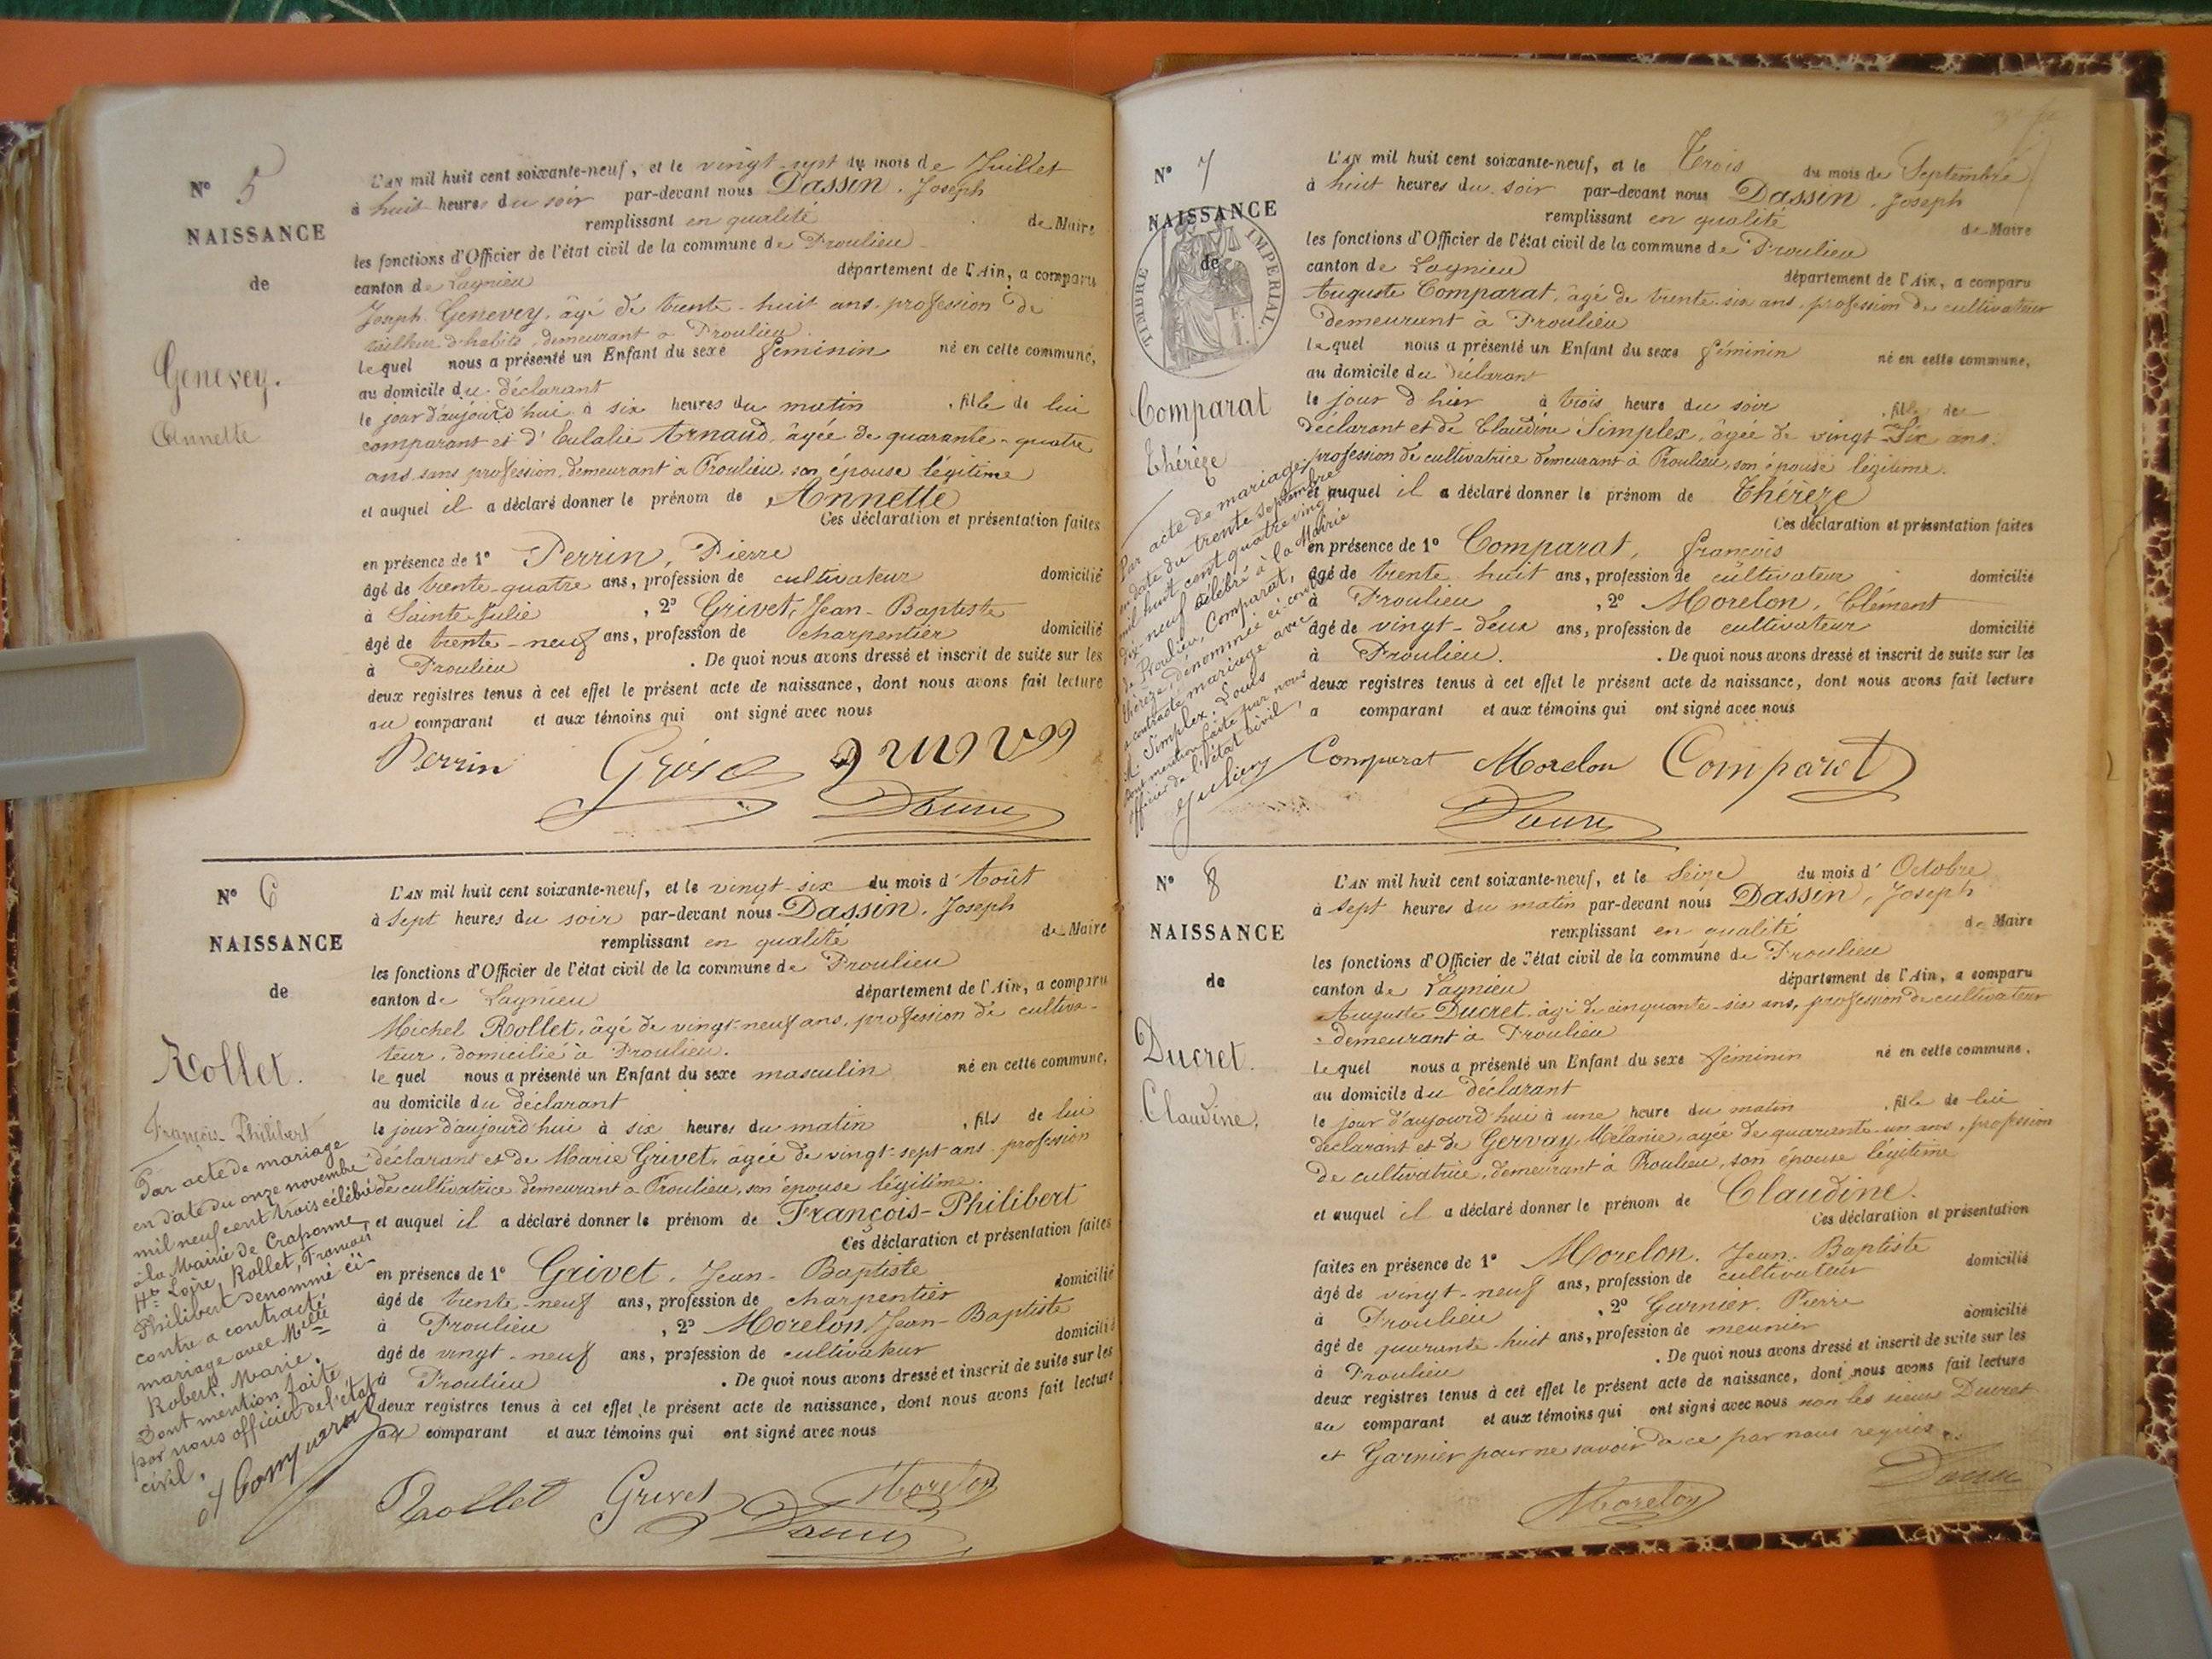 N° 5
NAISSANCE
de
Genevey.
Annette
L'AN mil huit cent soixante-neuf, et le vingt-sept du mois de Juillet
à huit heures du soir par-devant nous Dassin, Joseph
remplissant en qualité de Maire
les fonctions d'Officier de l'état civil de la commune de Proulieu
canton de Lagnieu département de l'Ain, a comparu
Joseph Genevey, âgé de trente-huit ans, profession de
tailleur d'habits, demeurant à Proulieu.
lequel nous a présenté un Enfant du sexe féminin né en cette commune,
au domicile du déclarant
le jour d'aujourd'hui à six heures du matin, fille de lui
comparant et d'Eulalie Arnaud, âgée de quarante-quatre
ans, sans profession, demeurant à Proulieu, son épouse légitime
et auquel il a déclaré donner le prénom de Annette
Ces déclaration et présentation faites
en présence de 1° Perrin, Pierre
âgé de trente-quatre ans, profession de cultivateur domicilié
à Sainte Julie, 2° Grivet, Jean-Baptiste
âgé de trente-neuf ans, profession de charpentier domicilié
à Proulieu. De quoi nous avons dressé et inscrit de suite sur les
deux registres tenus à cet effet le présent acte de naissance, dont nous avons fait lecture
au comparant et aux témoins qui ont signé avec nous
Perrin
N° 6
NAISSANCE
de
Rollet.
François-Philibert
Par acte de mariage
en date du onze novembre
mil neuf cent trois célébré
à la Mairie de Craponne
Hte Loire, Rollet, François
Philibert dénommé ci-
contre a contracté
mariage avec Melle
Robert, Marie.
Dont mention faite
par nous officier de l'état
civil.
L'AN mil huit cent soixante-neuf, et le vingt-six du mois d'Août
à sept heures du soir par-devant nous Dassin, Joseph
remplissant en qualité de Maire
les fonctions d'Officier de l'état civil de la commune de Proulieu
canton de Lagnieu département de l'Ain, a comparu
Michel Rollet, âgé de vingt-neuf ans, profession de cultiva-
teur, domicilié à Proulieu.
lequel nous a présenté un Enfant du sexe masculin né en cette commune,
au domicile du déclarant
le jour d'aujourd'hui à six heures du matin, fils de lui
déclarant et de Marie Grivet, âgée de vingt-sept ans, profession
de cultivatrice demeurant à Proulieu, son épouse légitime.
et auquel il a déclaré donner le prénom de François-Philibert
Ces déclaration et présentation faites
en présence de 1° Grivet, Jean-Baptiste
âgé de trente-neuf ans, profession de charpentier domicilié
à Proulieu, 2° Morelon, Jean-Baptiste
âgé de vingt-neuf ans, profession de cultivateur domicilié
à Proulieu. De quoi nous avons dressé et inscrit de suite sur les
deux registres tenus à cet effet le présent acte de naissance, dont nous avons fait lecture
au comparant et aux témoins qui ont signé avec nous
Rollet Grivet Morelon
N° 7
NAISSANCE
de
TIMBRE IMPERIAL.
Comparat
Thérèze
Par acte de mariage
en date du trente septembre
mil huit cent quatre vingt
dix-neuf célébré à la Mairie
de Proulieu, Comparat,
thérèze, dénommée ci-contre
a contracté mariage avec
M. Simplex, Louis
dont mention faite par nous
officier de l'état civil,
L'AN mil huit cent soixante-neuf, et le Trois du mois de Septembre
à huit heures du soir par-devant nous Dassin, Joseph
remplissant en qualité de Maire
les fonctions d'Officier de l'état civil de la commune de Proulieu
canton de Lagnieu département de l'Ain, a comparu
Auguste Comparat, âgé de trente-six ans, profession de cultivateur
demeurant à Proulieu
lequel nous a présenté un Enfant du sexe féminin né en cette commune,
au domicile du déclarant
le jour d'hier à trois heures du soir, fille de
déclarant et de Claudine Simplex, âgée de vingt-six ans,
profession de cultivatrice demeurant à Proulieu, son épouse légitime.
et auquel il a déclaré donner le prénom de Thérèze
Ces déclaration et présentation faites
en présence de 1° Comparat, françois
âgé de trente huit ans, profession de cultivateur domicilié
à Proulieu, 2° Morelon, Clément
âgé de vingt-deux ans, profession de cultivateur domicilié
à Proulieu. De quoi nous avons dressé et inscrit de suite sur les
deux registres tenus à cet effet le présent acte de naissance, dont nous avons fait lecture
a comparant et aux témoins qui ont signé avec nous
Comparat Morelon Comparat
N° 8
NAISSANCE
de
Ducret.
Claudine.
L'AN mil huit cent soixante-neuf, et le Seize du mois d'Octobre
à sept heures du matin par-devant nous Dassin, Joseph
remplissant en qualité de Maire
les fonctions d'Officier de l'état civil de la commune de Proulieu
canton de Lagnieu département de l'Ain, a comparu
Auguste Ducret, âgé de cinquante-six ans, profession de cultivateur
demeurant à Proulieu
lequel nous a présenté un Enfant du sexe féminin né en cette commune,
au domicile du déclarant
le jour d'aujourd'hui à une heure du matin, fille de lui
déclarant et de Gervay Mélanie, âgée de quarante-un ans, profession
de cultivatrice, demeurant à Proulieu, son épouse légitime
et auquel il a déclaré donner le prénom de Claudine.
Ces déclaration et présentation
faites en présence de 1° Morelon, Jean-Baptiste
âgé de vingt-neuf ans, profession de cultivateur domicilié
à Proulieu, 2° Garnier, Pierre
âgé de quarante-huit ans, profession de meunier domicilié
à Proulieu. De quoi nous avons dressé et inscrit de suite sur les
deux registres tenus à cet effet le présent acte de naissance, dont nous avons fait lecture
au comparant et aux témoins qui ont signé avec nous non les sieurs Ducret
et Garnier pour ne savoir de ce par nous requis.
Morelon